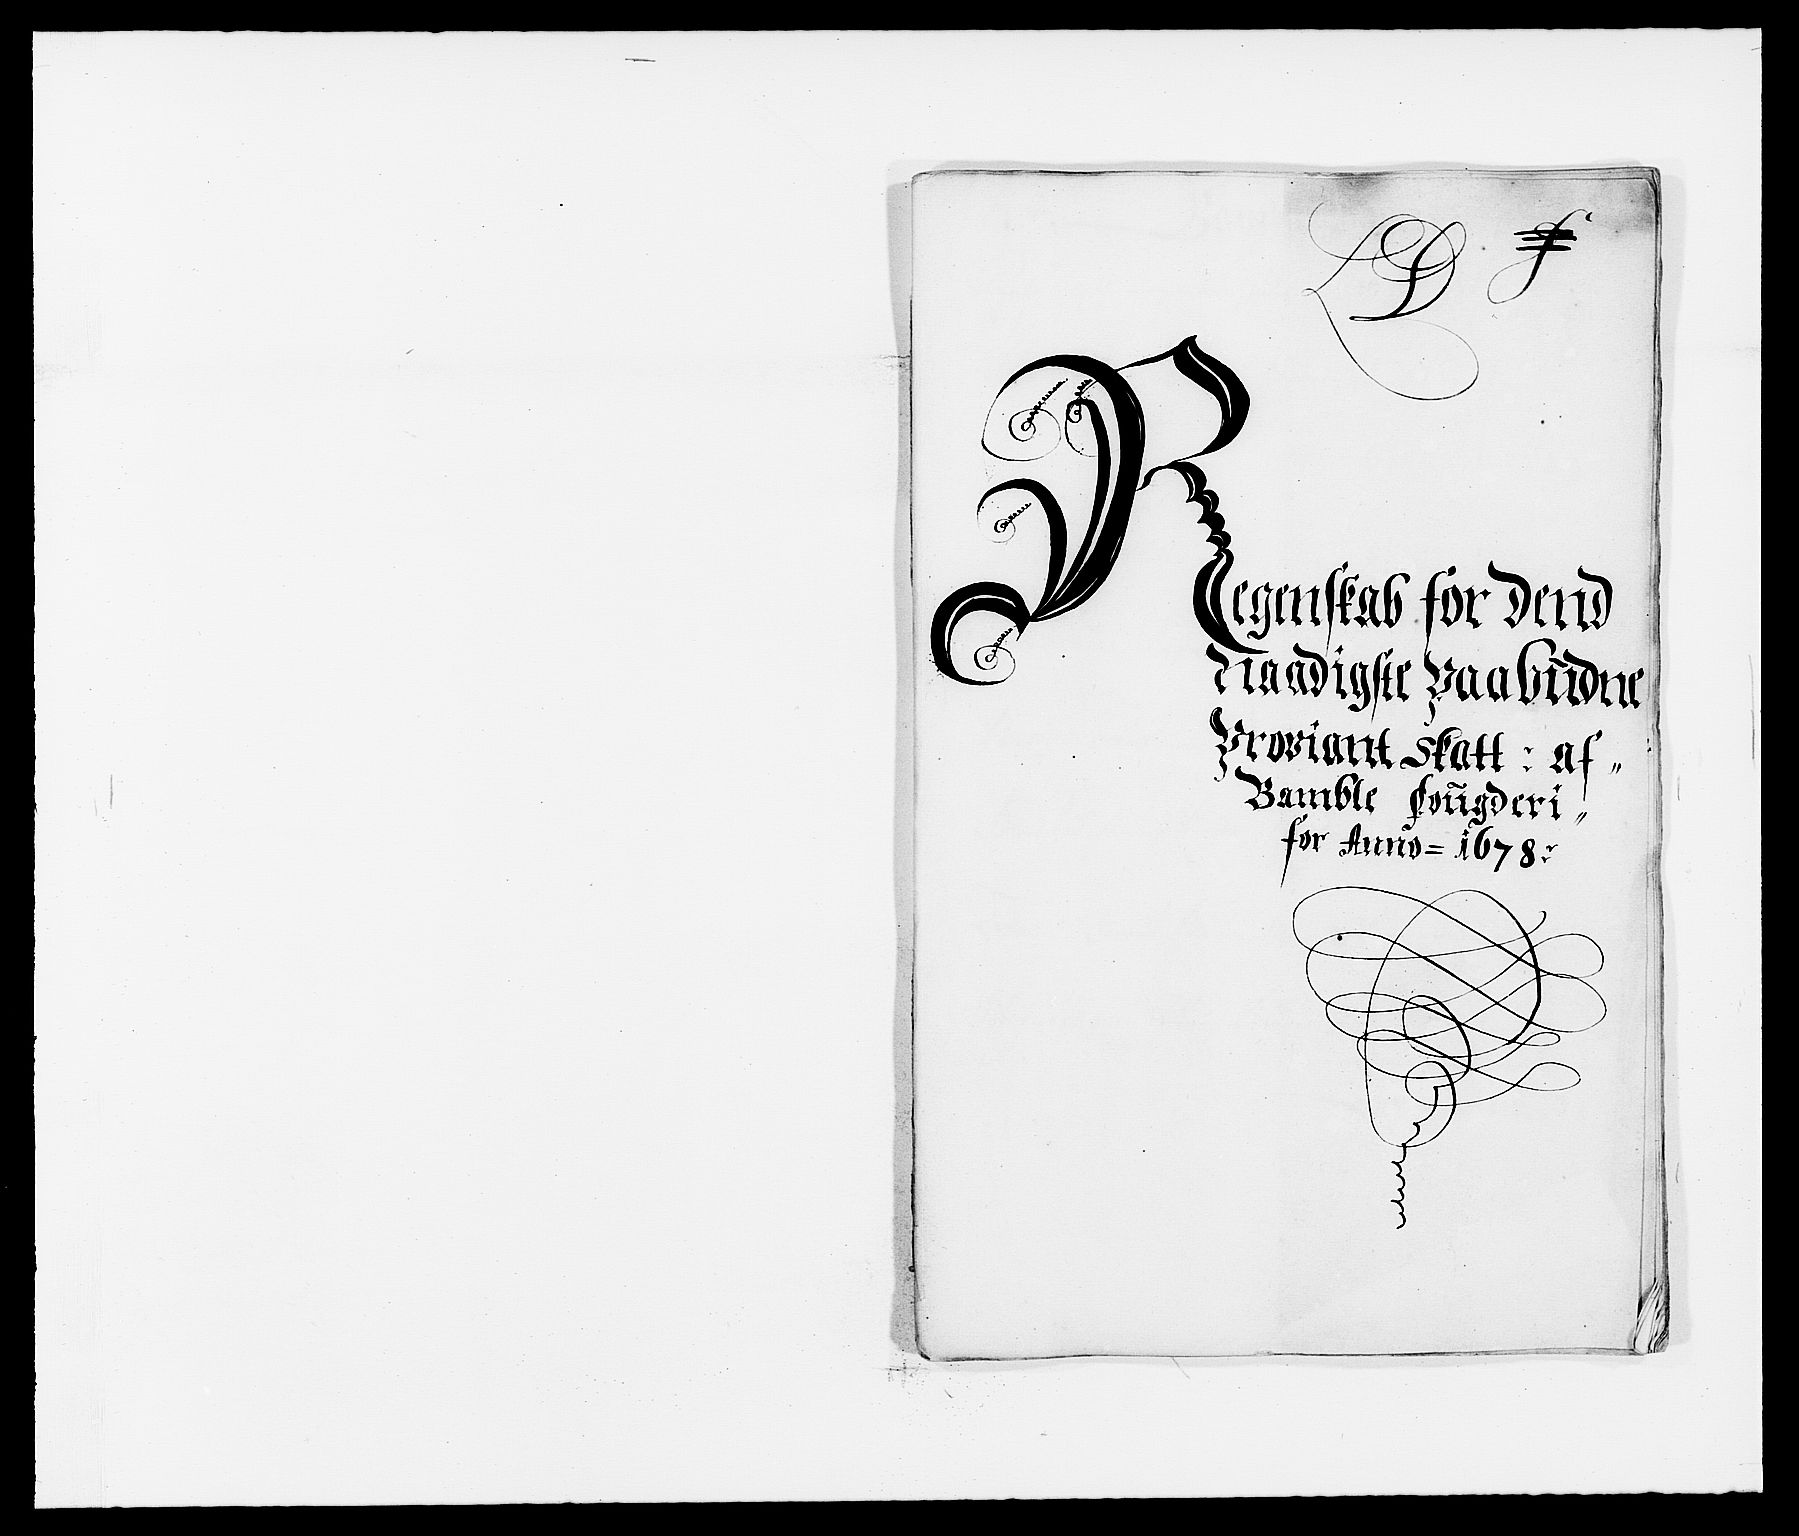 LD f
Regenskab for Dend
Naadigste Paabudne
Proviant Skatt : af „
Bamble fougderi „
for Anno = 1678 :